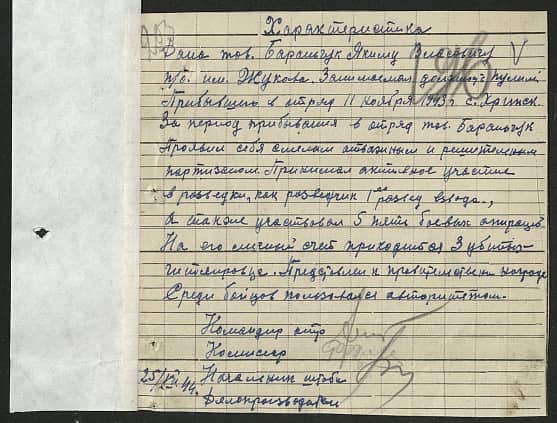 Характеристика
Дана тов. Баранчук Якиму Власовичу
п/о им. Жукова. Занимаемая должность
Прибывшего в отряд 11 ноября 1943 г. с.
За период прибывания в отряд тов. Баранчук
Проявил себя смелым отважным и решительным
партизаном. Принимал активное участие
в разведки, как разведчик 1го развед взвода,
А также участвовал 5 пять боевых операций
На его личный счет приходится 3 убитых
гитлеровца. Представлен к правительствен награде
Среди бойцов пользовался авторитетом.
Командир отр
Комиссар
25/XII 44. Начальник штаба
Делопроизводител